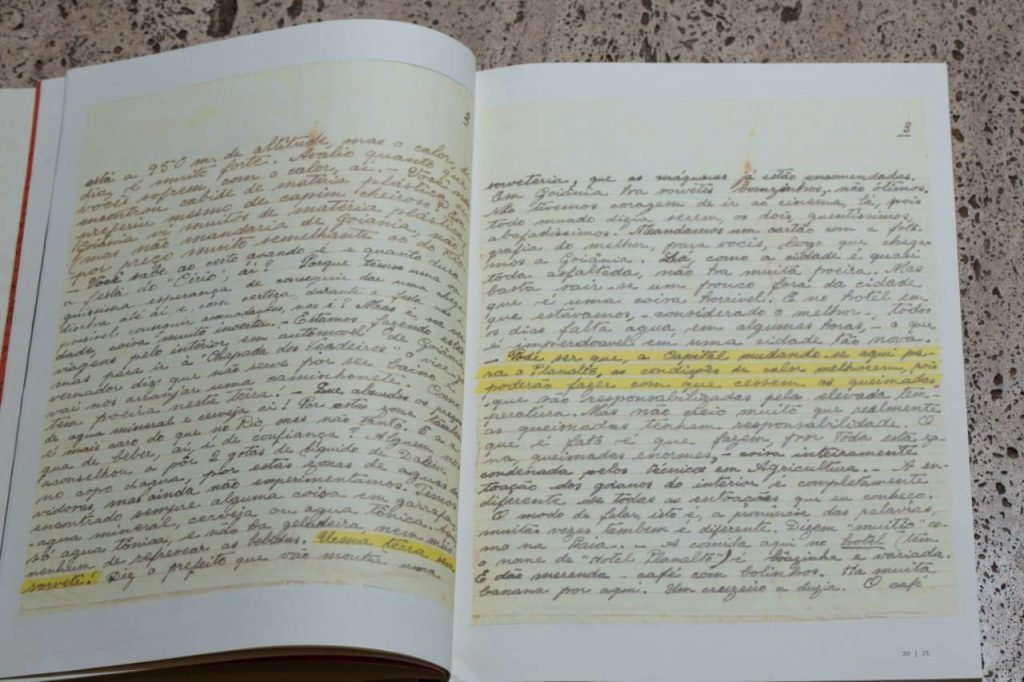 está a 950 m. de altitude, mas o calor, de
dia, é muito forte. Avalio quanto que
vocês sofrem com o calor, aí. - Você
encontrou cabide de matéria plástica
preferiu mesmo de capim cheiroso? Em
Goiânia vi muitos de matéria plástica
mas não mandaria de Goiânia, não
por preço muito semelhante ao do
Você sabe ao certo quando é e quanto dura
a festa do "Círio", aí? Porque temos uma
quíssima esperança de conseguir uma
dinha até aí, e, com certeza, durante a festa, não
possível conseguir acomodações, não é? Mas é, na ver-
dade, coisa muito incerta. - Estamos fazendo as
viagens pelo interior em automóvel de Goiânia
mas para ir à "Chapada dos Veadeiros" o
vernador diz que não serve por ser baixo.
vai nos arranjar uma caminhonete. - Como
tem poeira nesta terra! - Que absurdos os preços
de água mineral e cerveja aí! Por estas zonas também
é mais caro do que no Rio, mas não tanto. E a
gua de beber, aí, é de confiança? Alguem nos
aconselhou a pôr 2 gotas de líquido de Dakin
no copo dagua, por estas zonas de aguas
vidosas, mas ainda não experimentamos. Temos
encontrado sempre alguma coisa em garrafa:
-agua mineral, cerveja ou agua tônica. Aqui
só agua tônica, e não ha geladeira nem meio
nenhum de refrescar as bebidas. Uma terra sem
sorvete! Diz o prefeito que vão montar uma
3
sorveteria, que as máquinas já estão encomendadas.
Em Goiânia ha sorvetes bonzinhos, não ótimos.
Não tivemos coragem de ir ao cinema, lá, pois
todo mundo dizia serem, os dois, quentíssimos,
abafadíssimos! Mandamos um cartão com a foto-
grafia do melhor, para vocês, logo que chega-
mos a Goiânia. Lá, como a cidade é quasi
toda asfaltada, não ha muita poeira. Mas
basta sair-se um pouco fora da cidade
que é uma coisa horrivel. E no hotel em
que estavamos, - considerado o melhor -, todos
os dias falta agua, em algumas horas, - o que
é imperdoavel em uma cidade tão nova.
- Pode ser que, a Capital mudando-se aqui pa-
ra o Planalto, as condições de calor melhorem, pois
poderão fazer com que cessem as queimadas,
- que são responsabilizadas pela elevada tem-
peratura. Mas não creio muito que realmente
as queimadas tenham responsabilidade. O
que é fato é que fazem, por toda esta zo-
na, queimadas enormes, - coisa inteiramente
condenada pelos técnicos em Agricultura. - A en-
toação dos goianos do interior é completamente
diferente de todas as entoações que eu conheço.
O modo de falar, isto é, a pronúncia das palavras,
muitas vezes tambem é diferente. Dizem "muntxo" co-
mo na Baía. - A comida aqui no hotel (tem
o nome de "Hotel Planalto") é boazinha e variada.
E dão merenda - café com bolinhos. Ha muita
banana por aqui. Um cruzeiro a duzia. O café
20 | 21